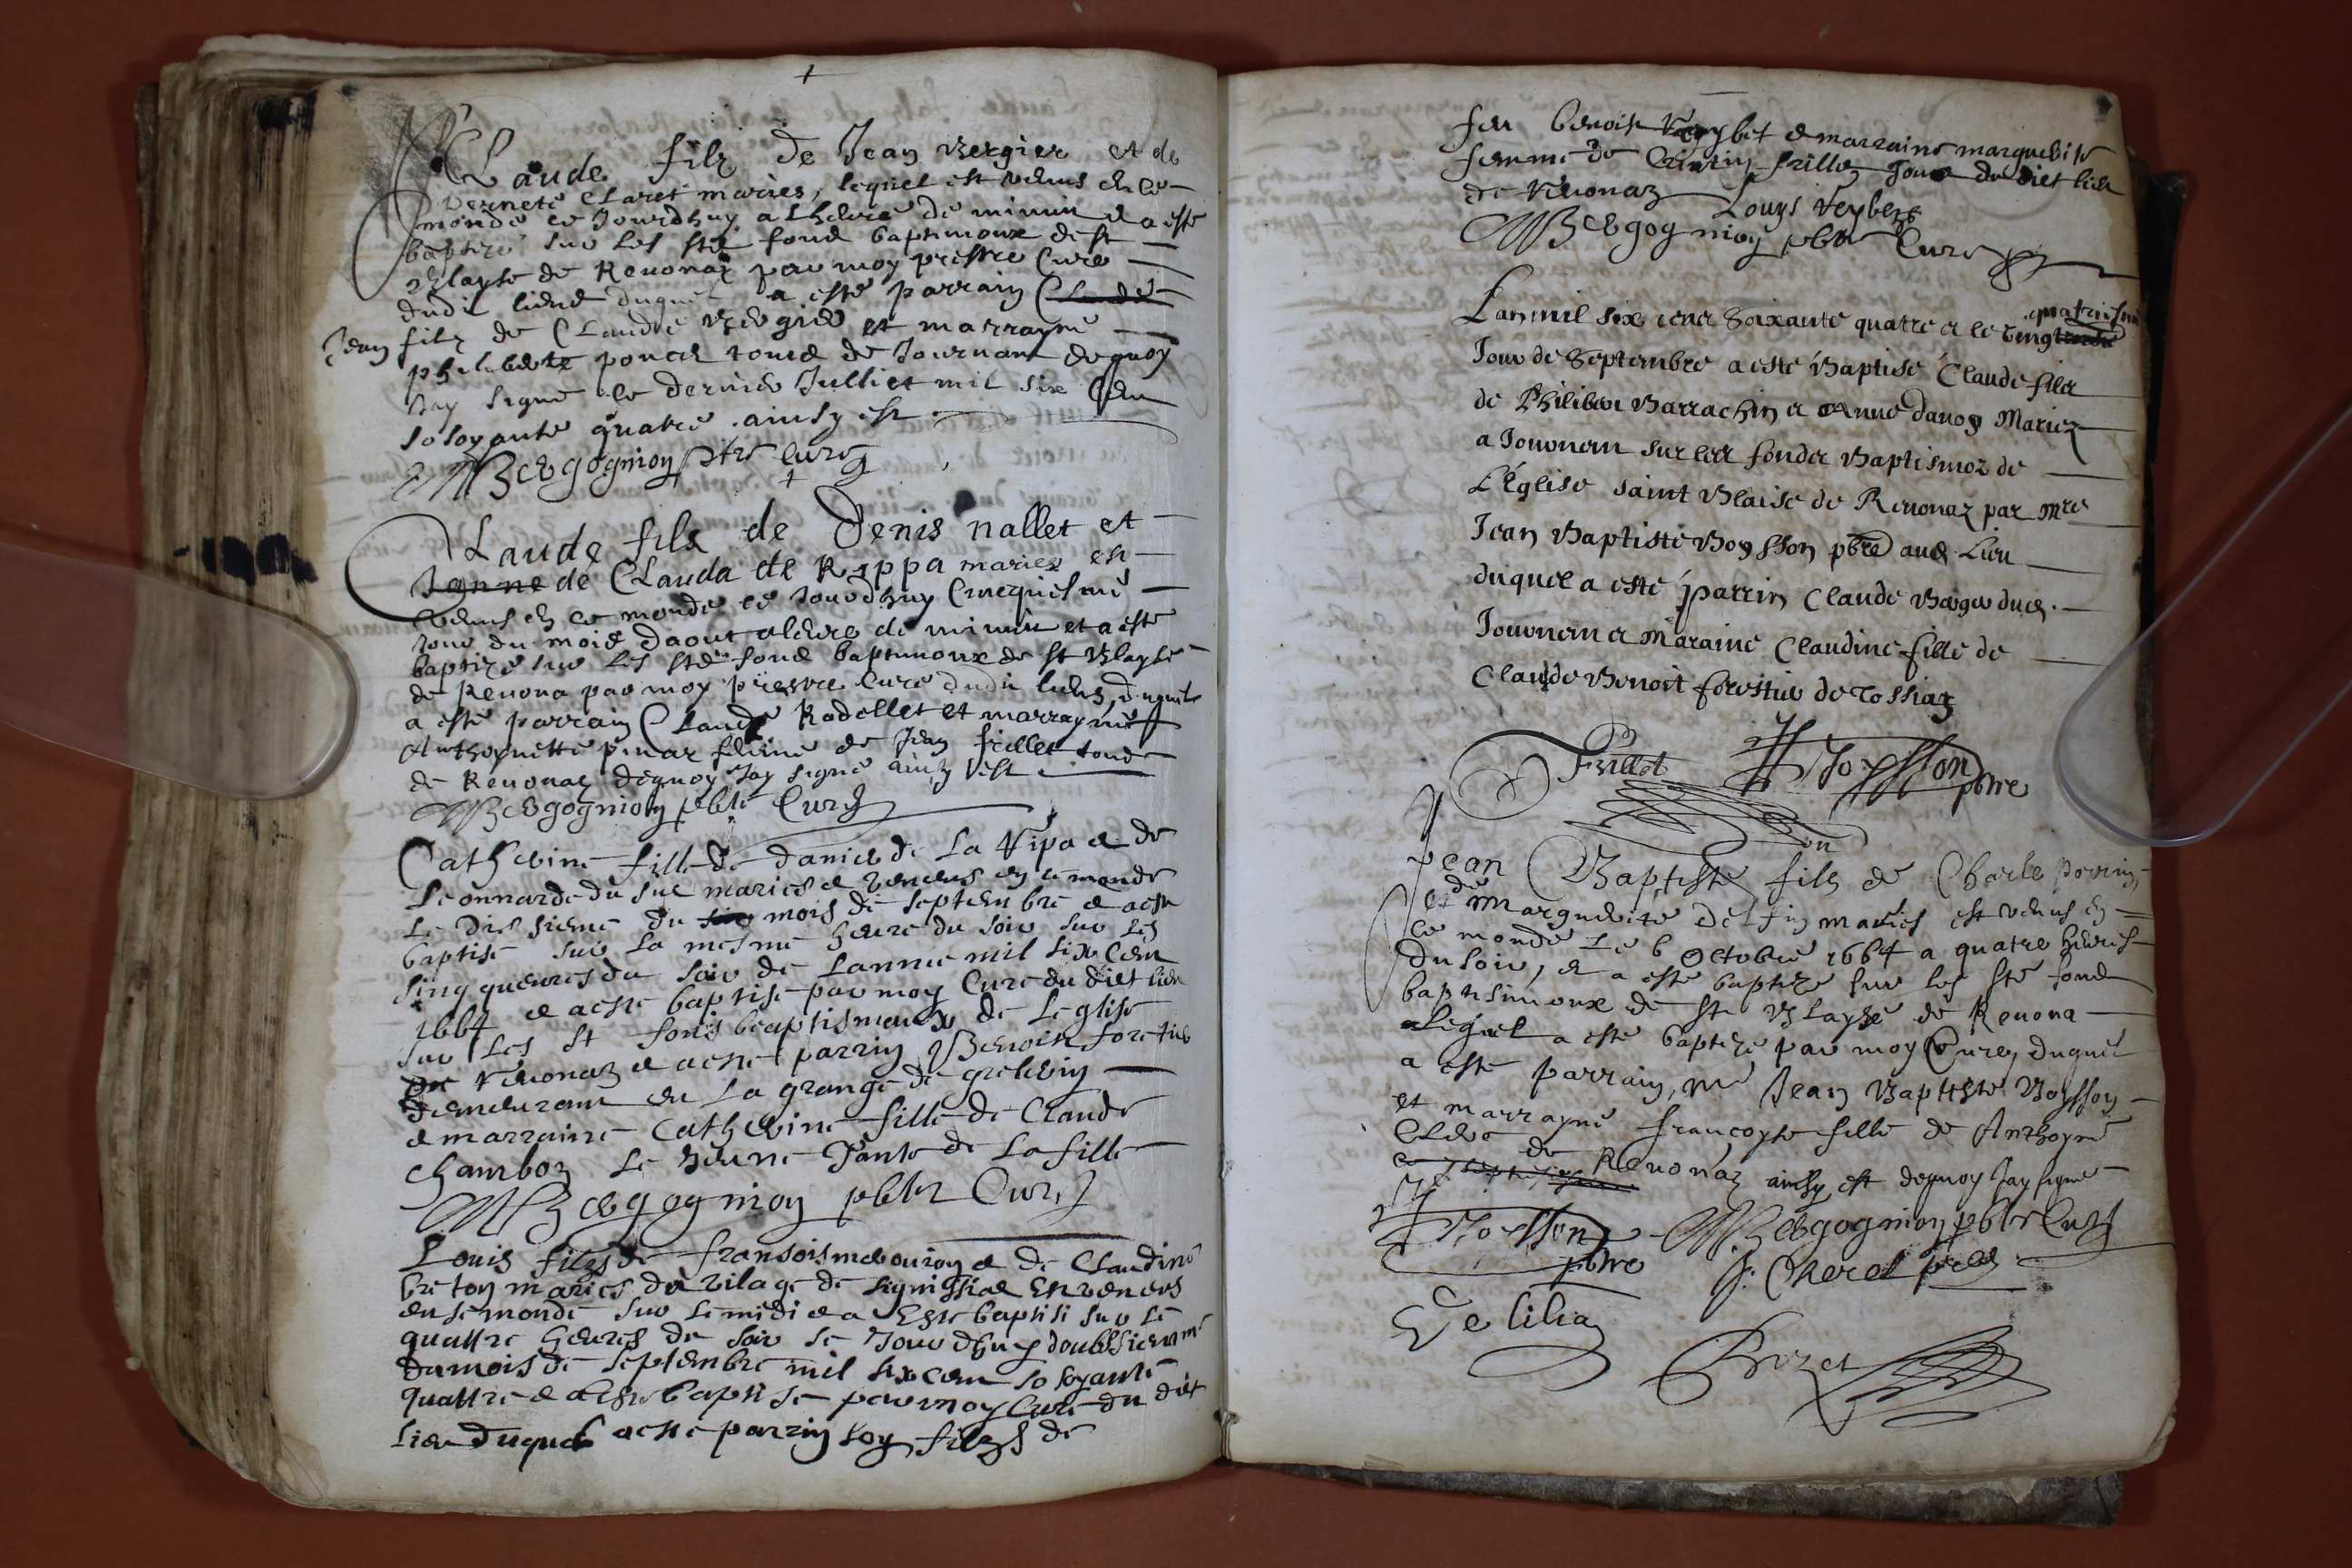 Claude filz de Jean Vergier et de
Pernete Claret mariés, lequel est venus en ce
monde ce Jourdhuy a lheure de minuit et a esté
baptizé sur les stz fond baptimoux de st
Blayse de Reuonaz par moy prestre Curé
dudit lieu duquel a esté parrain Claude
Jean filz de Claude Vergier et marrayne
philiberte poncet tous de Journant de quoy
Jay signé ce dernier Julliet mil six Cen
soisoyante quatre ainsy est
Bergognion ptre curé
Claude fils de Denis nallet et
Jeanne de Clauda de Rippa mariez est
venus en ce monde ce Jourdhuy Cinequiesme
Jour du mois daout a leure de minuit et a esté
baptizé sur les stz fond baptimoux de st Blayse
de Reuona par moy prestre Curé dudit lieu, duquel
a esté parrain Claude Radellet et marrayne
Anthoynette pinar femme de Jean frillet tous
de Reuonaz dequoy Jay signé ainsy est
Bergognion pbtre Curé
Catherine fille de daniel de La Ripa et de
Leonnarde du sue mariés et venus en ce monde
Le diessieme du mois de septembre et a este
baptisé sur La mesme heure du soir sur Les
sinq heures du soir de Lannee mil six Cen
1664 et a este baptisé par moy Curé du diet lieu
sur Les st fonts beaptismaux de Leglise
de Reuonaz et a este parrin Benoist foretier
demeurant en La grange de grelevin
et marraine Catherine fille de Claude
Chambon Le Jeune Tante de La fille
Bergognion pbtr Curé
Louis filz de fransois mebouron et de Claudine
breton mariés du vilage de signissiat Est venus
en se monde sur Le midi et a Este baptisé sur Le
quattre heures de soir se Jour dhuy doubssieme
du mois de septembre mil six cen soisoyante
quattre et a este baptisé par moy Curé du diet
Lieu duquel a este parrin Loy filz de
feu benoist Veybet et marraine marguerite
femme de frillet Tous du diet lieu
de Reuonaz Louys Veybet
Bergognion pbtr Curé
Lan mil six cent Soixante quatre et le vingt quatriesme
Jour de Septembre a esté Baptisé Claude filz
de Philibert Barrachin et Anne danoy Mariez
a Journan sur les fonds Baptismoz de
L'Église saint Blaise de Reuonaz par Mre
Jean Baptiste Boysson pbre aud. Lieu
duquel a esté parrin Claude Verger dud.
Journan et Maraine Claudine fille de
Claude Benoit forestier de Tossiaz
Frillet Boysson pbre
Jean Baptiste fils de Charle Perrin
et de Marguerite Delfin mariés est venus en
ce monde Le 6 Octobre 1664 a quatre heures
du soir, et a esté baptizé sur les stz fond
baptisimoux de st Blayse de Reuona
Lequel a esté baptizé par moy Curé, duquel
a esté parrain, Mre Jean Baptiste Boysson
et marrayne françoyse fille de Anthoyne
Clere de Reuonaz ainsy est dequoy Jay signé
Boysson pbre Bergognion pbtr Curé
Delilia
Brizet